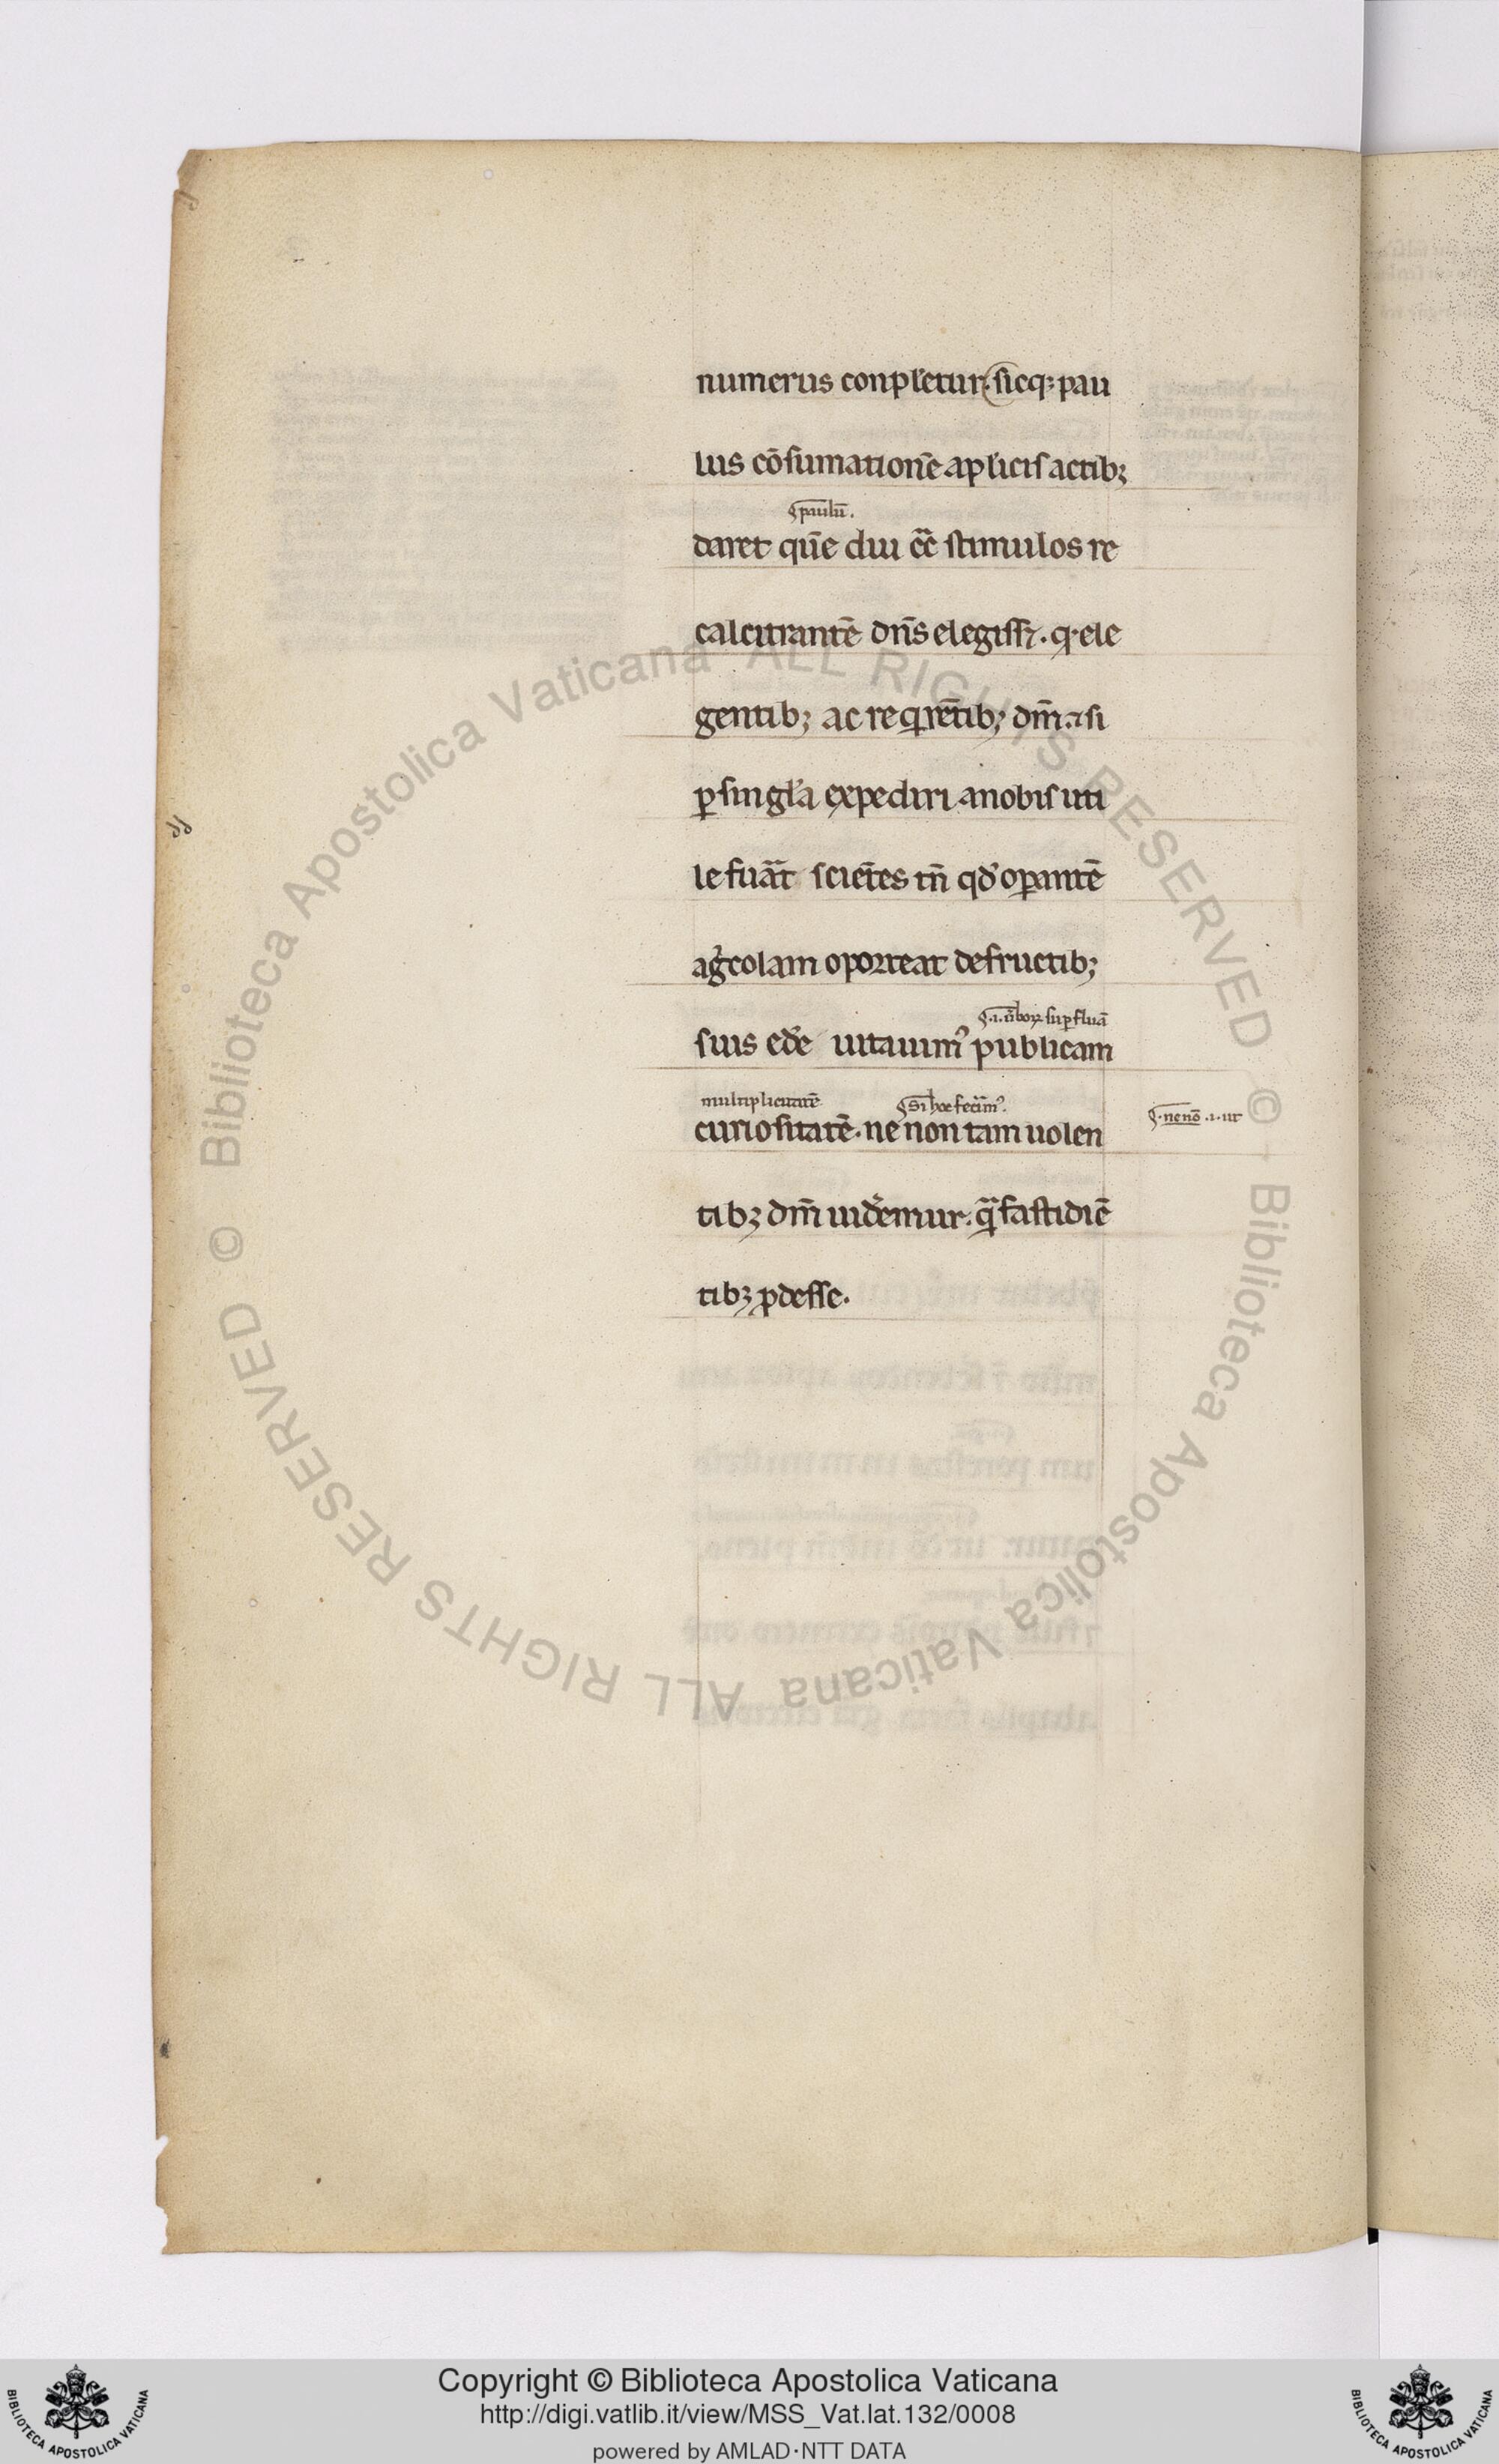 numerus conpl'etur. sicq; pau
lus cōsumationē apl'icis actib;
ꝯ paulū.
daret quē diu cͣē stimulos re
calcitrantē dn̄s elegiss&. q' ele
gentib; ac requirētib; dm̄. ⁊ si
ꝑ singl'a expediri a nobis uti
le fuāt sciētes tn̄ qd' oꝑantē
agͥcolam oporteat de fructib;
.i. ūboꝝ suꝑfluā
suis ed'e uitauim᾿ publicam
multiplicitatē si hoc fecͥim᾿.
curiositatē. ne non tam uolen
ne nō .i. ut
tib; dm̄ uid'emur. qͣ fastidiē
tib; ꝓdesse.
Biblioteca Apostolica Vaticana ALL RIGHTS RESERVED ©
Biblioteca Apostolica Vaticana ALL RIGHTS RESERVED ©
Copyright © Biblioteca Apostolica Vaticana
http://digi.vatlib.it/view/MSS_Vat.lat.132/0008
powered by AMLAD·NTT DATA
BIBLIOTECA APOSTOLICA VATICANA
BIBLIOTECA APOSTOLICA VATICANA